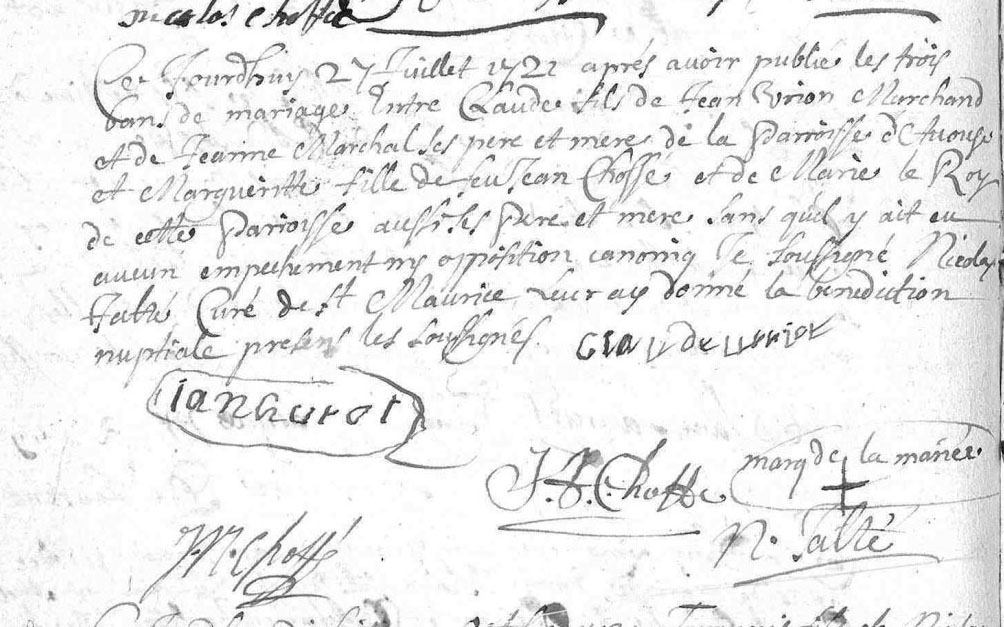 nicolos Choffé
Ce Jourdhuy 27 Juillet 1721 aprés avoir publié les trois
bans de mariage Entre Claude fils de Jean Vrion Marchand
et de Jeanne Marchal ses pere et mere de la Parroisse
et Margueritte fille de feu Jean Choffé et de Marie le Roy
de cette Parroisse aussi ses Pere et mere sans quil y ait eu
aucun empechement ny opposition canoniq Je soussigné Nicolas
Jalté Curé de St Maurice leur ay donné la benediction
nuptiale presens les soussignés. Claude urion
ianhurot
J.F. Choffé marq de la mariée
M. Choffé N. Jalté